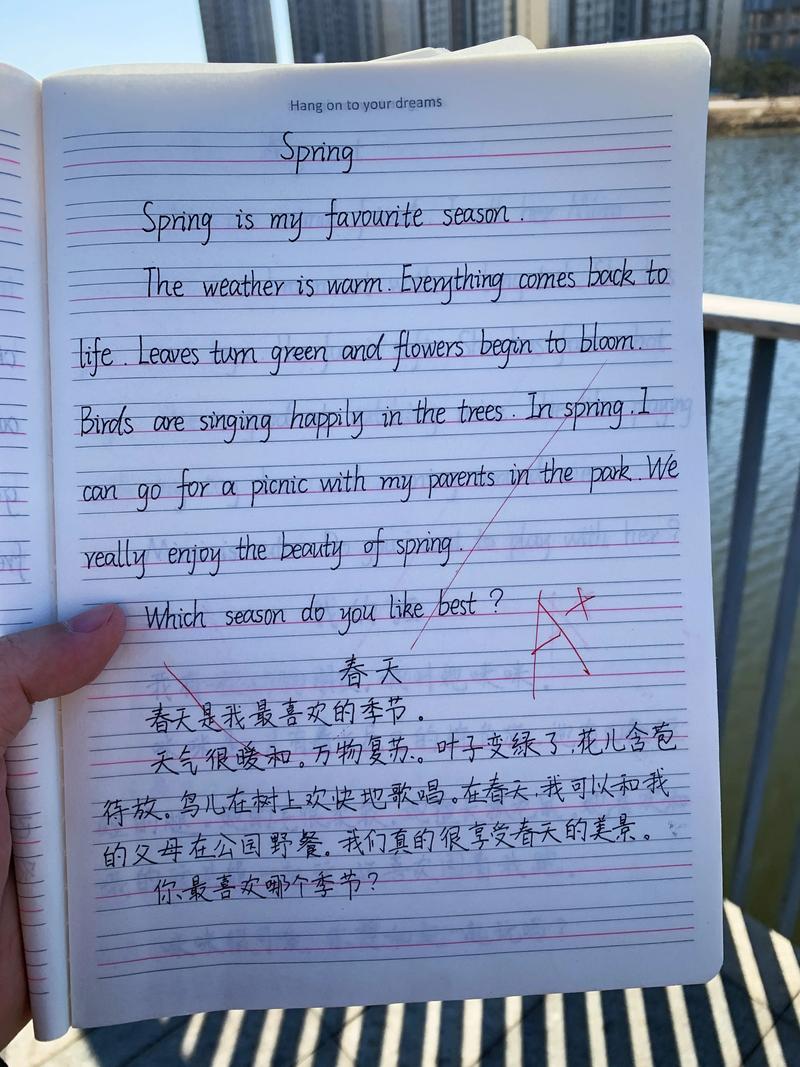 Hang on to your dreams
Spring
Spring is my favourite season.
The weather is warm. Everything comes back to
life. Leaves turn green and flowers begin to bloom.
Birds are singing happily in the trees. In spring, I
can go for a picnic with my parents in the park. We
really enjoy the beauty of spring.
Which season do you like best?
A+
春天
春天是我最喜欢的季节。
天气很暖和。万物复苏。叶子变绿了,花儿含苞
待放。鸟儿在树上欢快地歌唱。在春天,我可以和我
的父母在公园野餐。我们真的很享受春天的美景。
你最喜欢哪个季节?